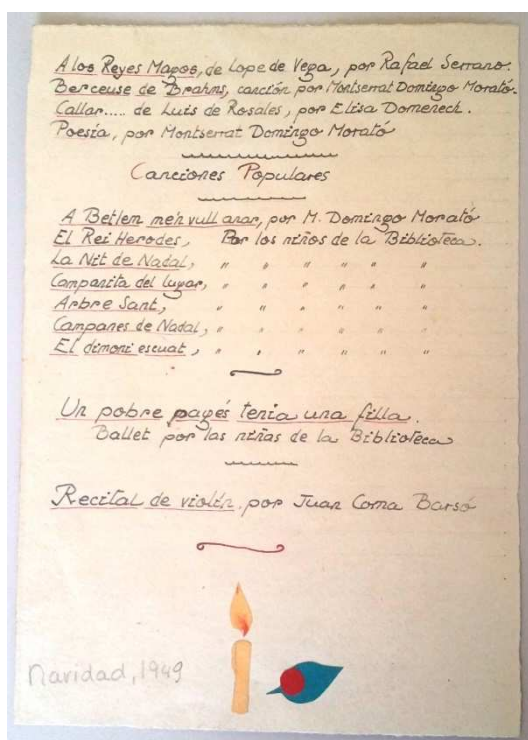 A los Reyes Magos, de Lope de Vega, por Rafael Serrano.
Berceuse de Brahms, canción por Montserrat Domingo Morató.
Callar.... de Luis de Rosales, por Elisa Domenech.
Poesía, por Montserrat Domingo Morató
Canciones Populares
A Betlem me'n vull anar, por M. Domingo Morató
El Rei Herodes, Por los niños de la Biblioteca.
La Nit de Nadal, " " " " " "
Campanita del lugar, " " " " " "
Arbre Sant, " " " " " "
Campanes de Nadal, " " " " " "
El dimoni escuat, " " " " " "
Un pobre pagés tenia una filla.
Ballet por las niñas de la Biblioteca
Recital de violín por Juan Coma Barsó
Navidad, 1949